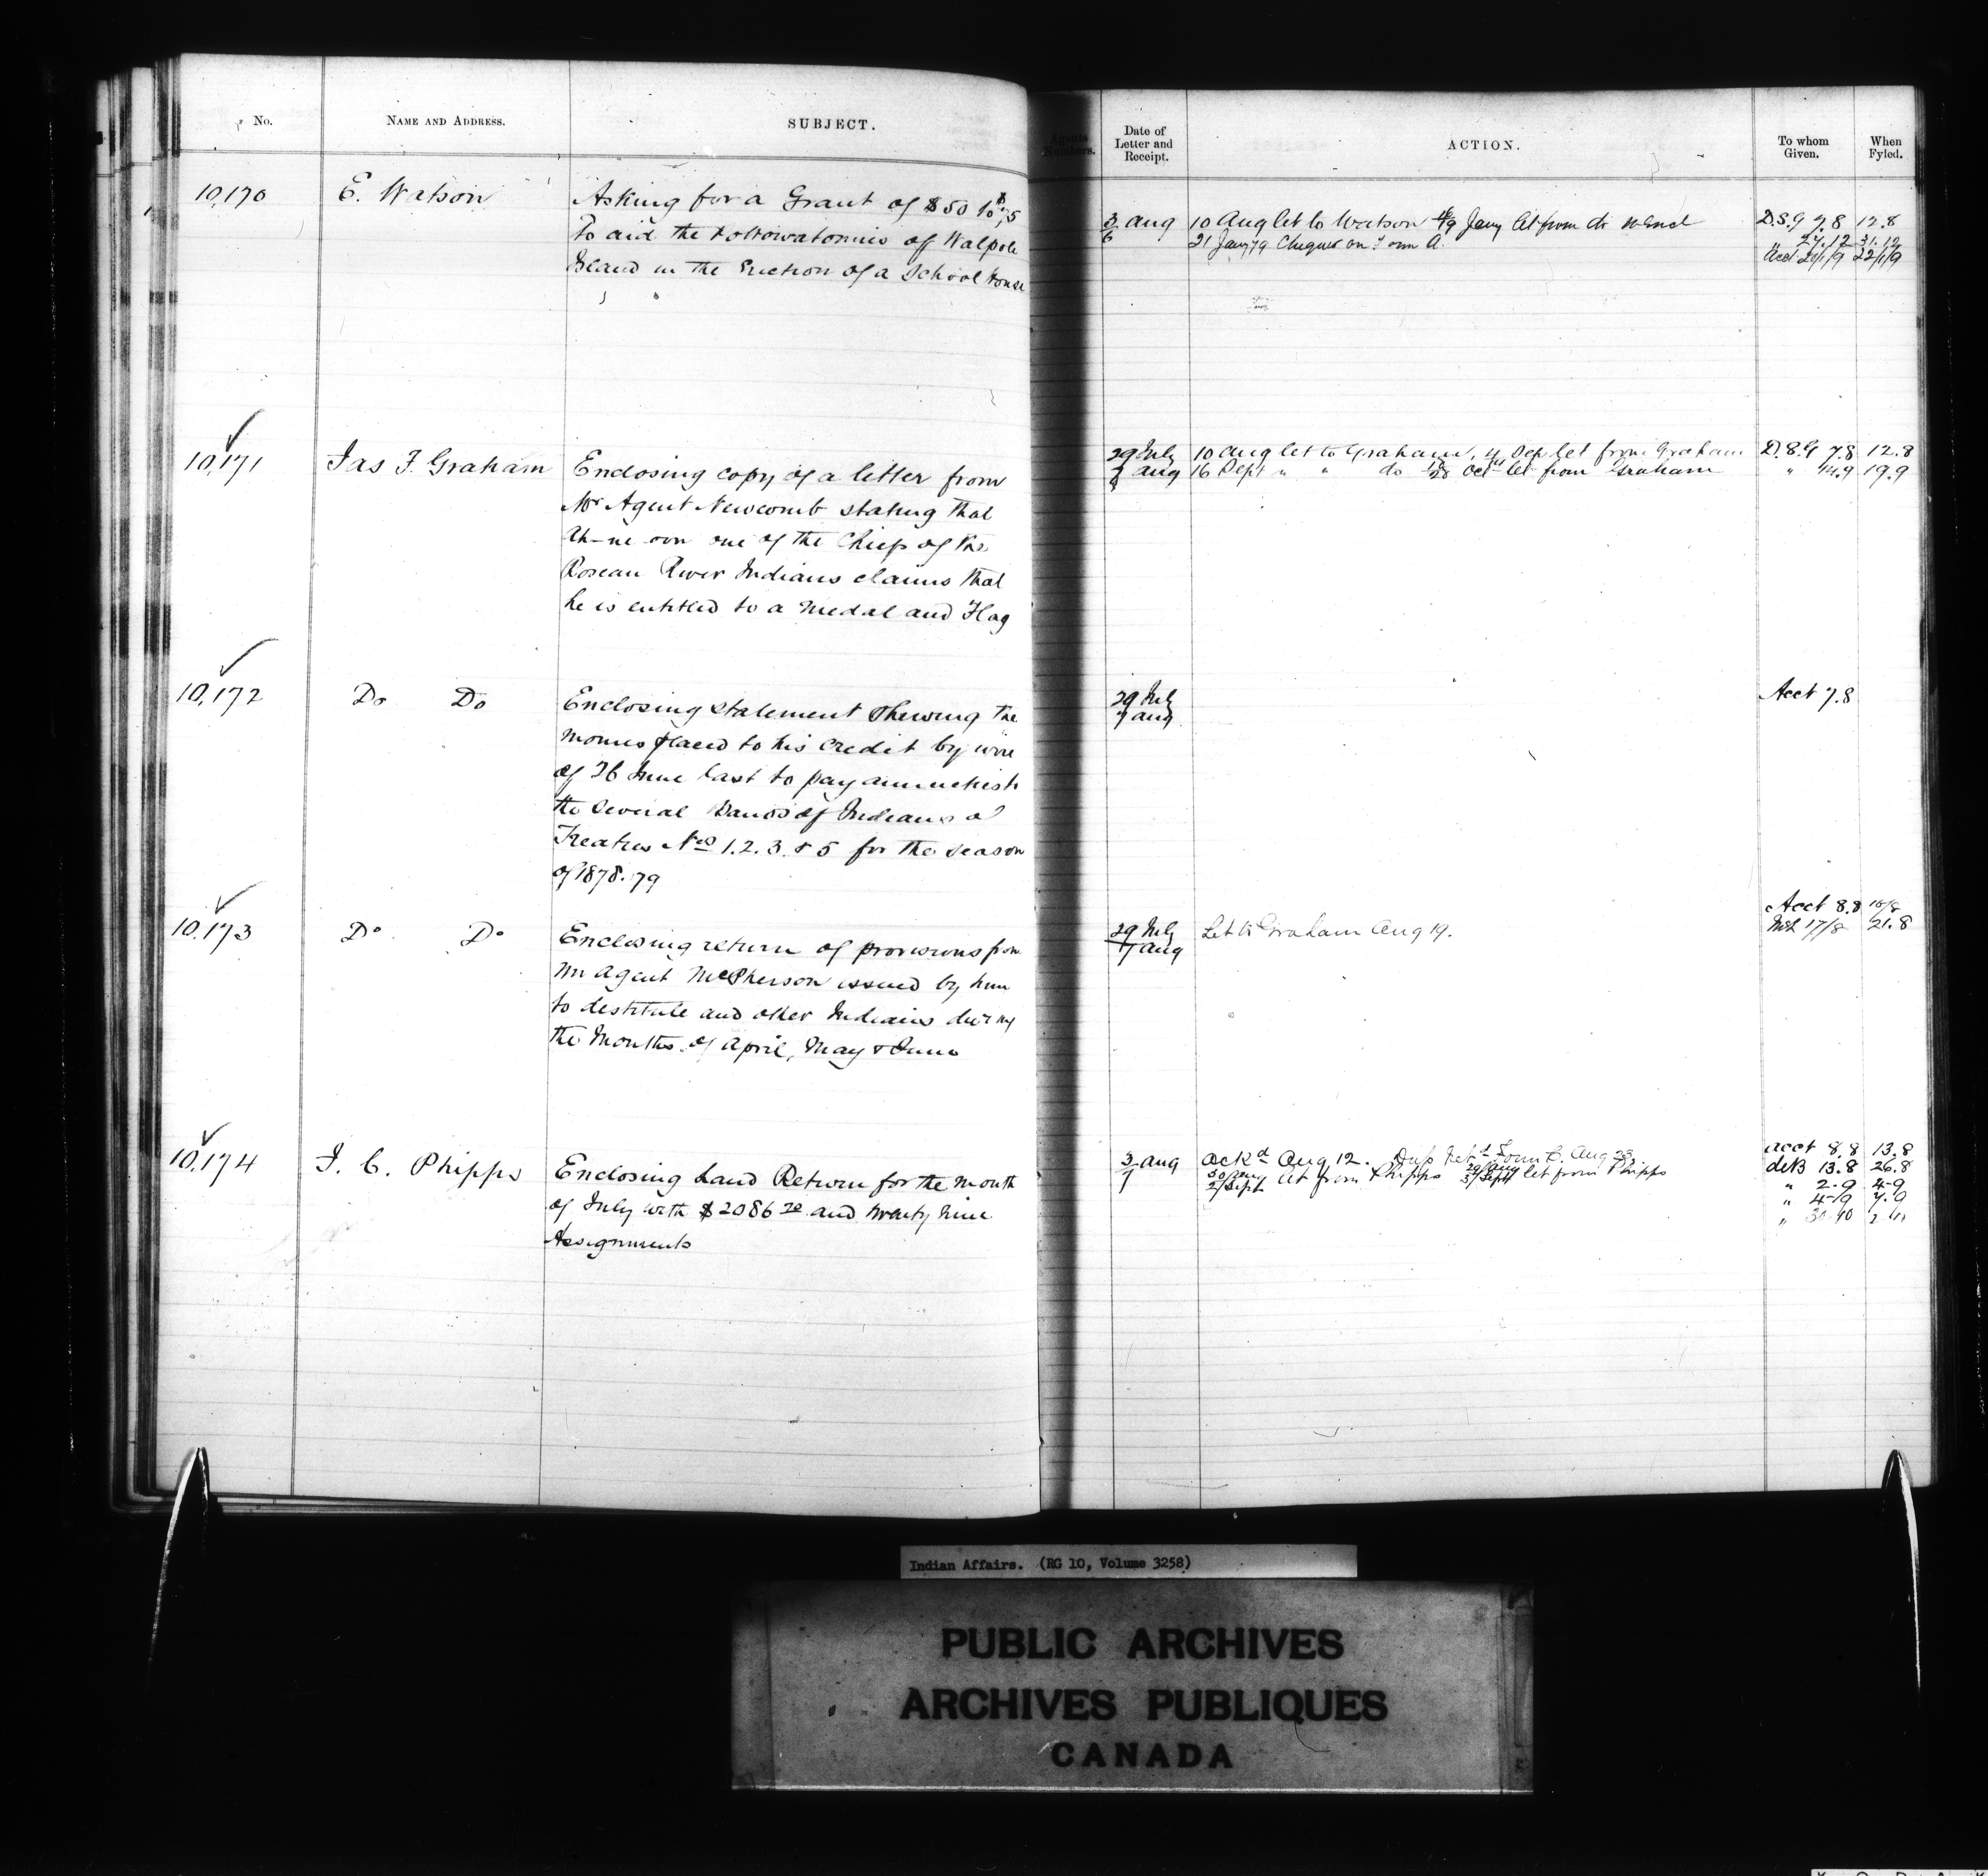 No.
NAME AND ADDRESS.
SUBJECT.
Agents Numbers.
Date of
Letter and
Receipt.
ACTION.
To whom
Given.
When
Fyled.
10,170
E. Watson
Asking for a Grant of $50 to
To aid the Pottowatomies of Walpole
Island in the Erection of a School House
3 Aug
6
10 Aug let to Watson Jany let from do
21 Jany 79 Cheques on Form A.
D.S.G 7.8 12.8
" 27.12 31.12
Acct 20/1/9 22/1/9
10,171
Jas F. Graham
Enclosing copy of a letter from
Mr Agent Newcomb stating that
one of the Chiefs of the
Roseau River Indians claims that
he is entitled to a Medal and Flag
29 July
7 Aug
10 Aug let to Graham, 4 Sep let from Graham
16 Sept " " do Oct let from Graham
D.S.G 7.8 12.8
" 14.9 19.9
10,172
Do Do
Enclosing statement shewing the
Monies placed to his credit by wire
of 26 June last to pay annuities to
the several Bands of Indians of
Treaties Nos 1. 2. 3. & 5 for the season
of 1878.79
29 July
7 Aug
Acct 7.8
10,173
Do Do
Enclosing return of provisions from
Mr Agent McPherson issued by him
to destitute and other Indians during
the Months of April, May & June
29 July
7 Aug
Let to Graham Aug 19.
Acct 8.8 16/8
17/8 21.8
10,174
J. C. Phipps
Enclosing Land Return for the Month
of July with $2086 20 and twenty nine
Assignments
3 Aug
7
Ackd Aug 12. Dup Retd Form C. Aug 23
30/Aug 2/Sept let from Phipps 29/Aug 3/Sept let from Phipps
Acct 8.8 13.8
13.8 26.8
" 2.9 4-9
" 4-9 7.9
" 30-10 2-11
Indian Affairs. (RG 10, Volume 3258)
PUBLIC ARCHIVES
ARCHIVES PUBLIQUES
CANADA